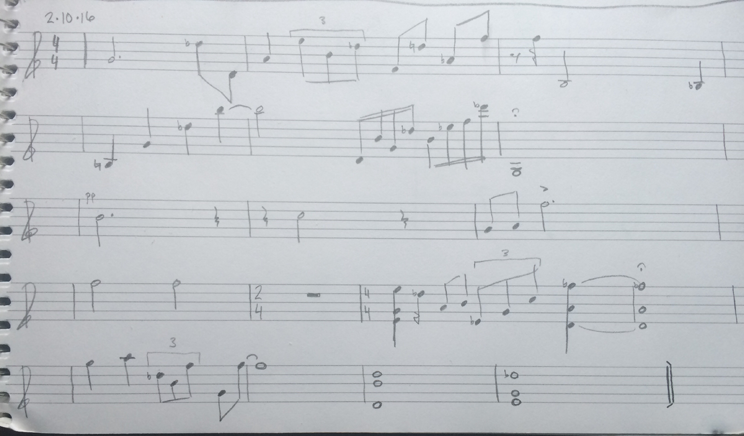 2.10.16
4
4
3
pp
2
4
4
4
3
3